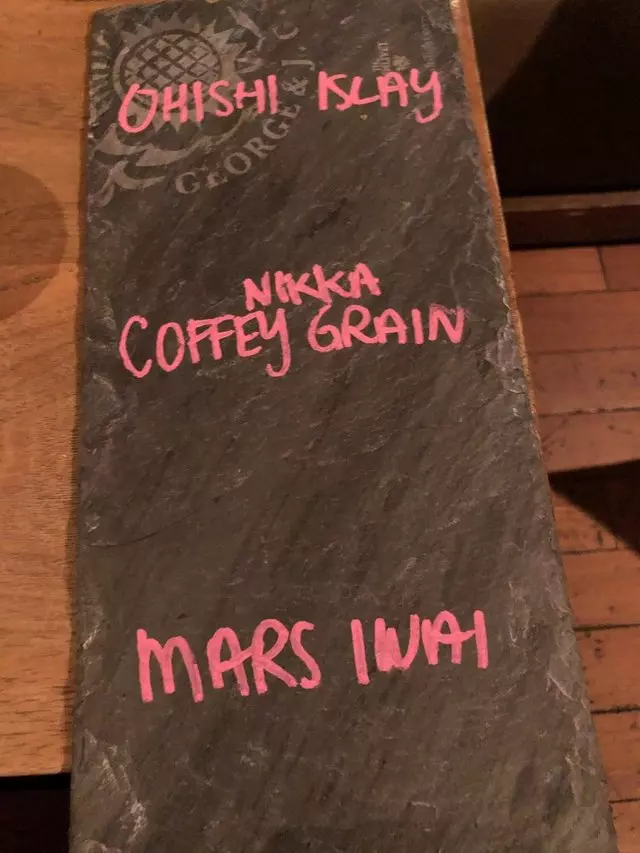 OHISHI ISLAY
GEORGE & J.
NIKKA
COFFEY GRAIN
MARS IWAI